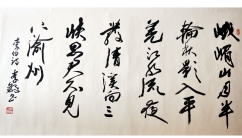 峨嵋山月半
輪秋影入平
羌江水流夜
發清溪向三
峡思君不見
下渝州
李白诗